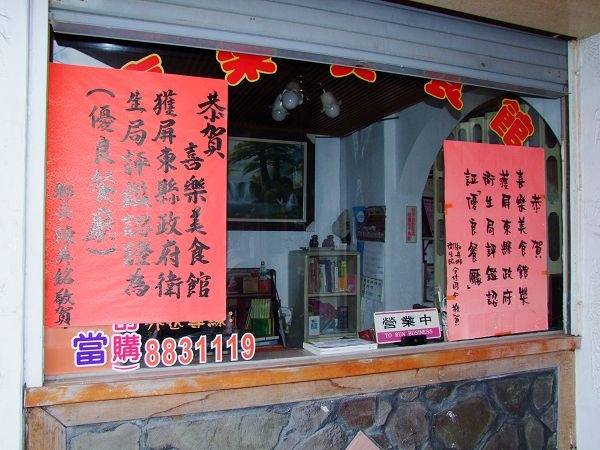 樂美食館
恭賀
喜樂美食館
獲屏東縣政府衛
生局評鑑認證為
(優良餐廳)
鄉長陳英銘敬賀
恭賀
喜樂美食館榮
獲屏東縣政府
衛生局評鑑認
証優良餐廳
敬賀
營業中
TO RUN BUSINESS
當
購
8831119